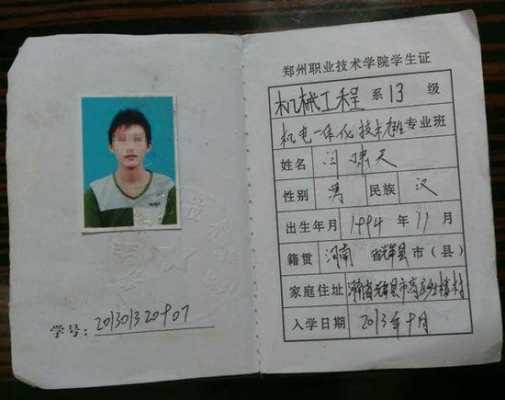 学号：
郑州职业技术学院学生证
机械工程 系 13 级
机电一体化技术 专业班
姓名 闫 天
性别 男 民族 汉
出生年月 1994 年 11 月
籍贯 河南 省辉县市（县）
家庭住址 河南省辉县市 村
入学日期 2013年9月